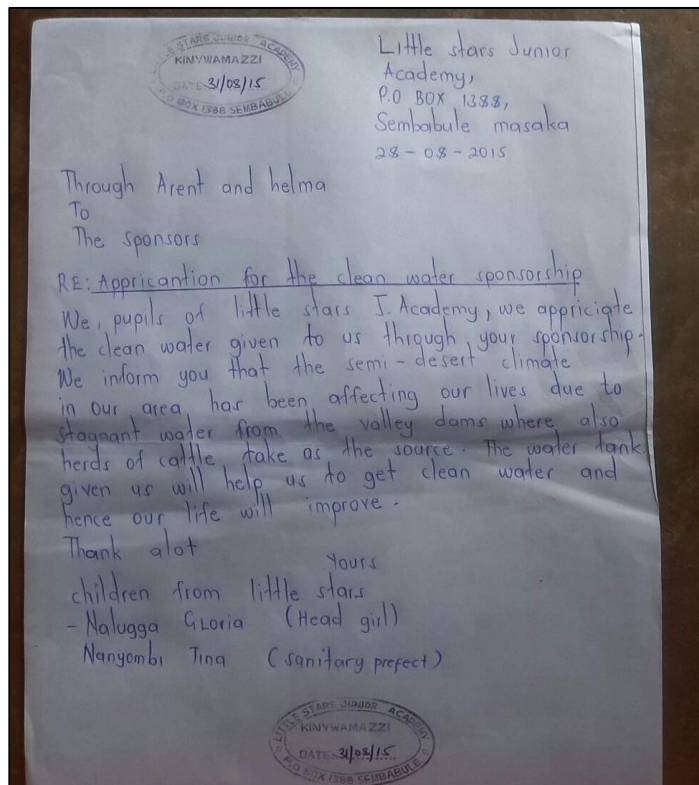 LITTLE STARS JUNIOR ACADEMY
KINYWAMAZZI
DATE: 31/08/15
P.O BOX 1388 SEMBABULE
Little stars Junior
Academy,
P.O BOX 1388,
Sembabule masaka
28-08-2015
Through Arent and helma
To
The sponsors
RE: Appricantion for the clean water sponsorship
We, pupils of little stars J. Academy, we appriciate
the clean water given to us through your sponsorship.
We inform you that the semi-desert climate
in our area has been affecting our lives due to
stagnant water from the valley dams where also
herds of cattle take as the source. The water tank
given us will help us to get clean water and
hence our life will improve.
Thank alot
Yours
children from little stars
- Nalugga GLoria (Head girl)
Nanyombi Tina (sanitary prefect)
LITTLE STARS JUNIOR ACADEMY
KINYWAMAZZI
DATE: 31/08/15
P.O BOX 1388 SEMBABULE